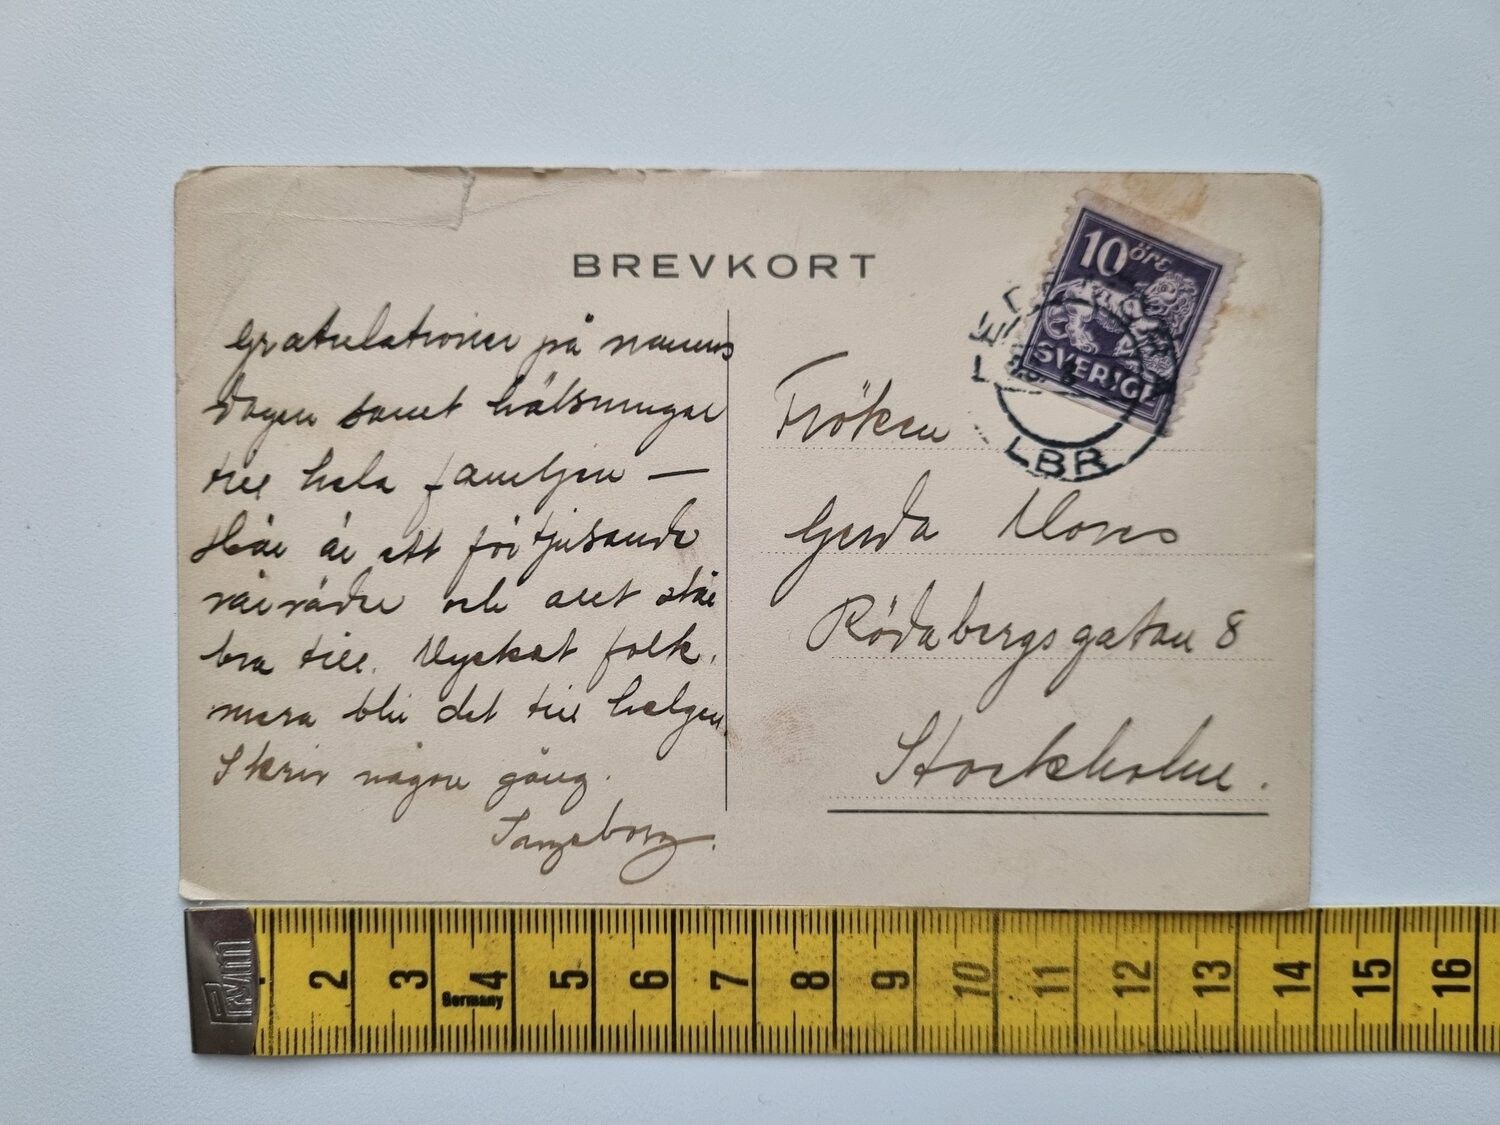 BREVKORT
10 öre
SVERIGE
LBR
Gratulationer på namns
dagen samt hälsningar
till hela familjen —
Här är ett förtjusande
vårväder och allt står
bra till. Mycket folk,
mera blir det till helgen.
Skriv någon gång.
Ingeborg.
Fröken
Gerda
Rödabergsgatan 8
Stockholm.
PRYM
2 3 4 5 6 7 8 9 10 11 12 13 14 15 16
Germany